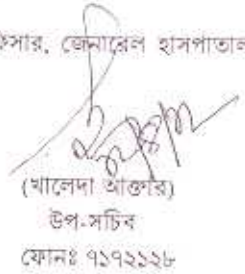 ফিসার, জেনারেল হাসপাতাল
(খালেদা আক্তার)
উপ-সচিব
ফোনঃ ৭১৭২১২৮